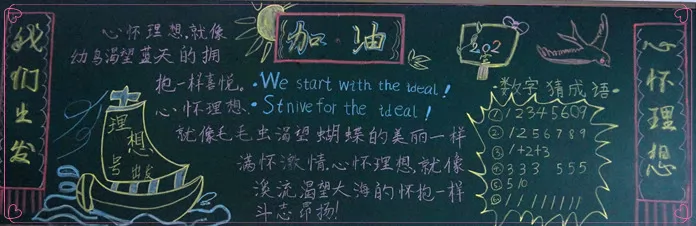 我们出发
心怀理想,就像
幼鸟渴望蓝天的拥
抱一样喜悦。
心怀理想,
就像毛毛虫渴望蝴蝶的美丽一样
满怀激情,心怀理想,就像
溪流渴望大海的怀抱一样
斗志昂扬!
理想号
出发
加油
·We start with the ideal!
·Strive for the ideal!
202
·数字猜成语·
① 12345609
② 1256789
③ 1+2+3
④ 333 555
⑤ 5 10
心怀理想